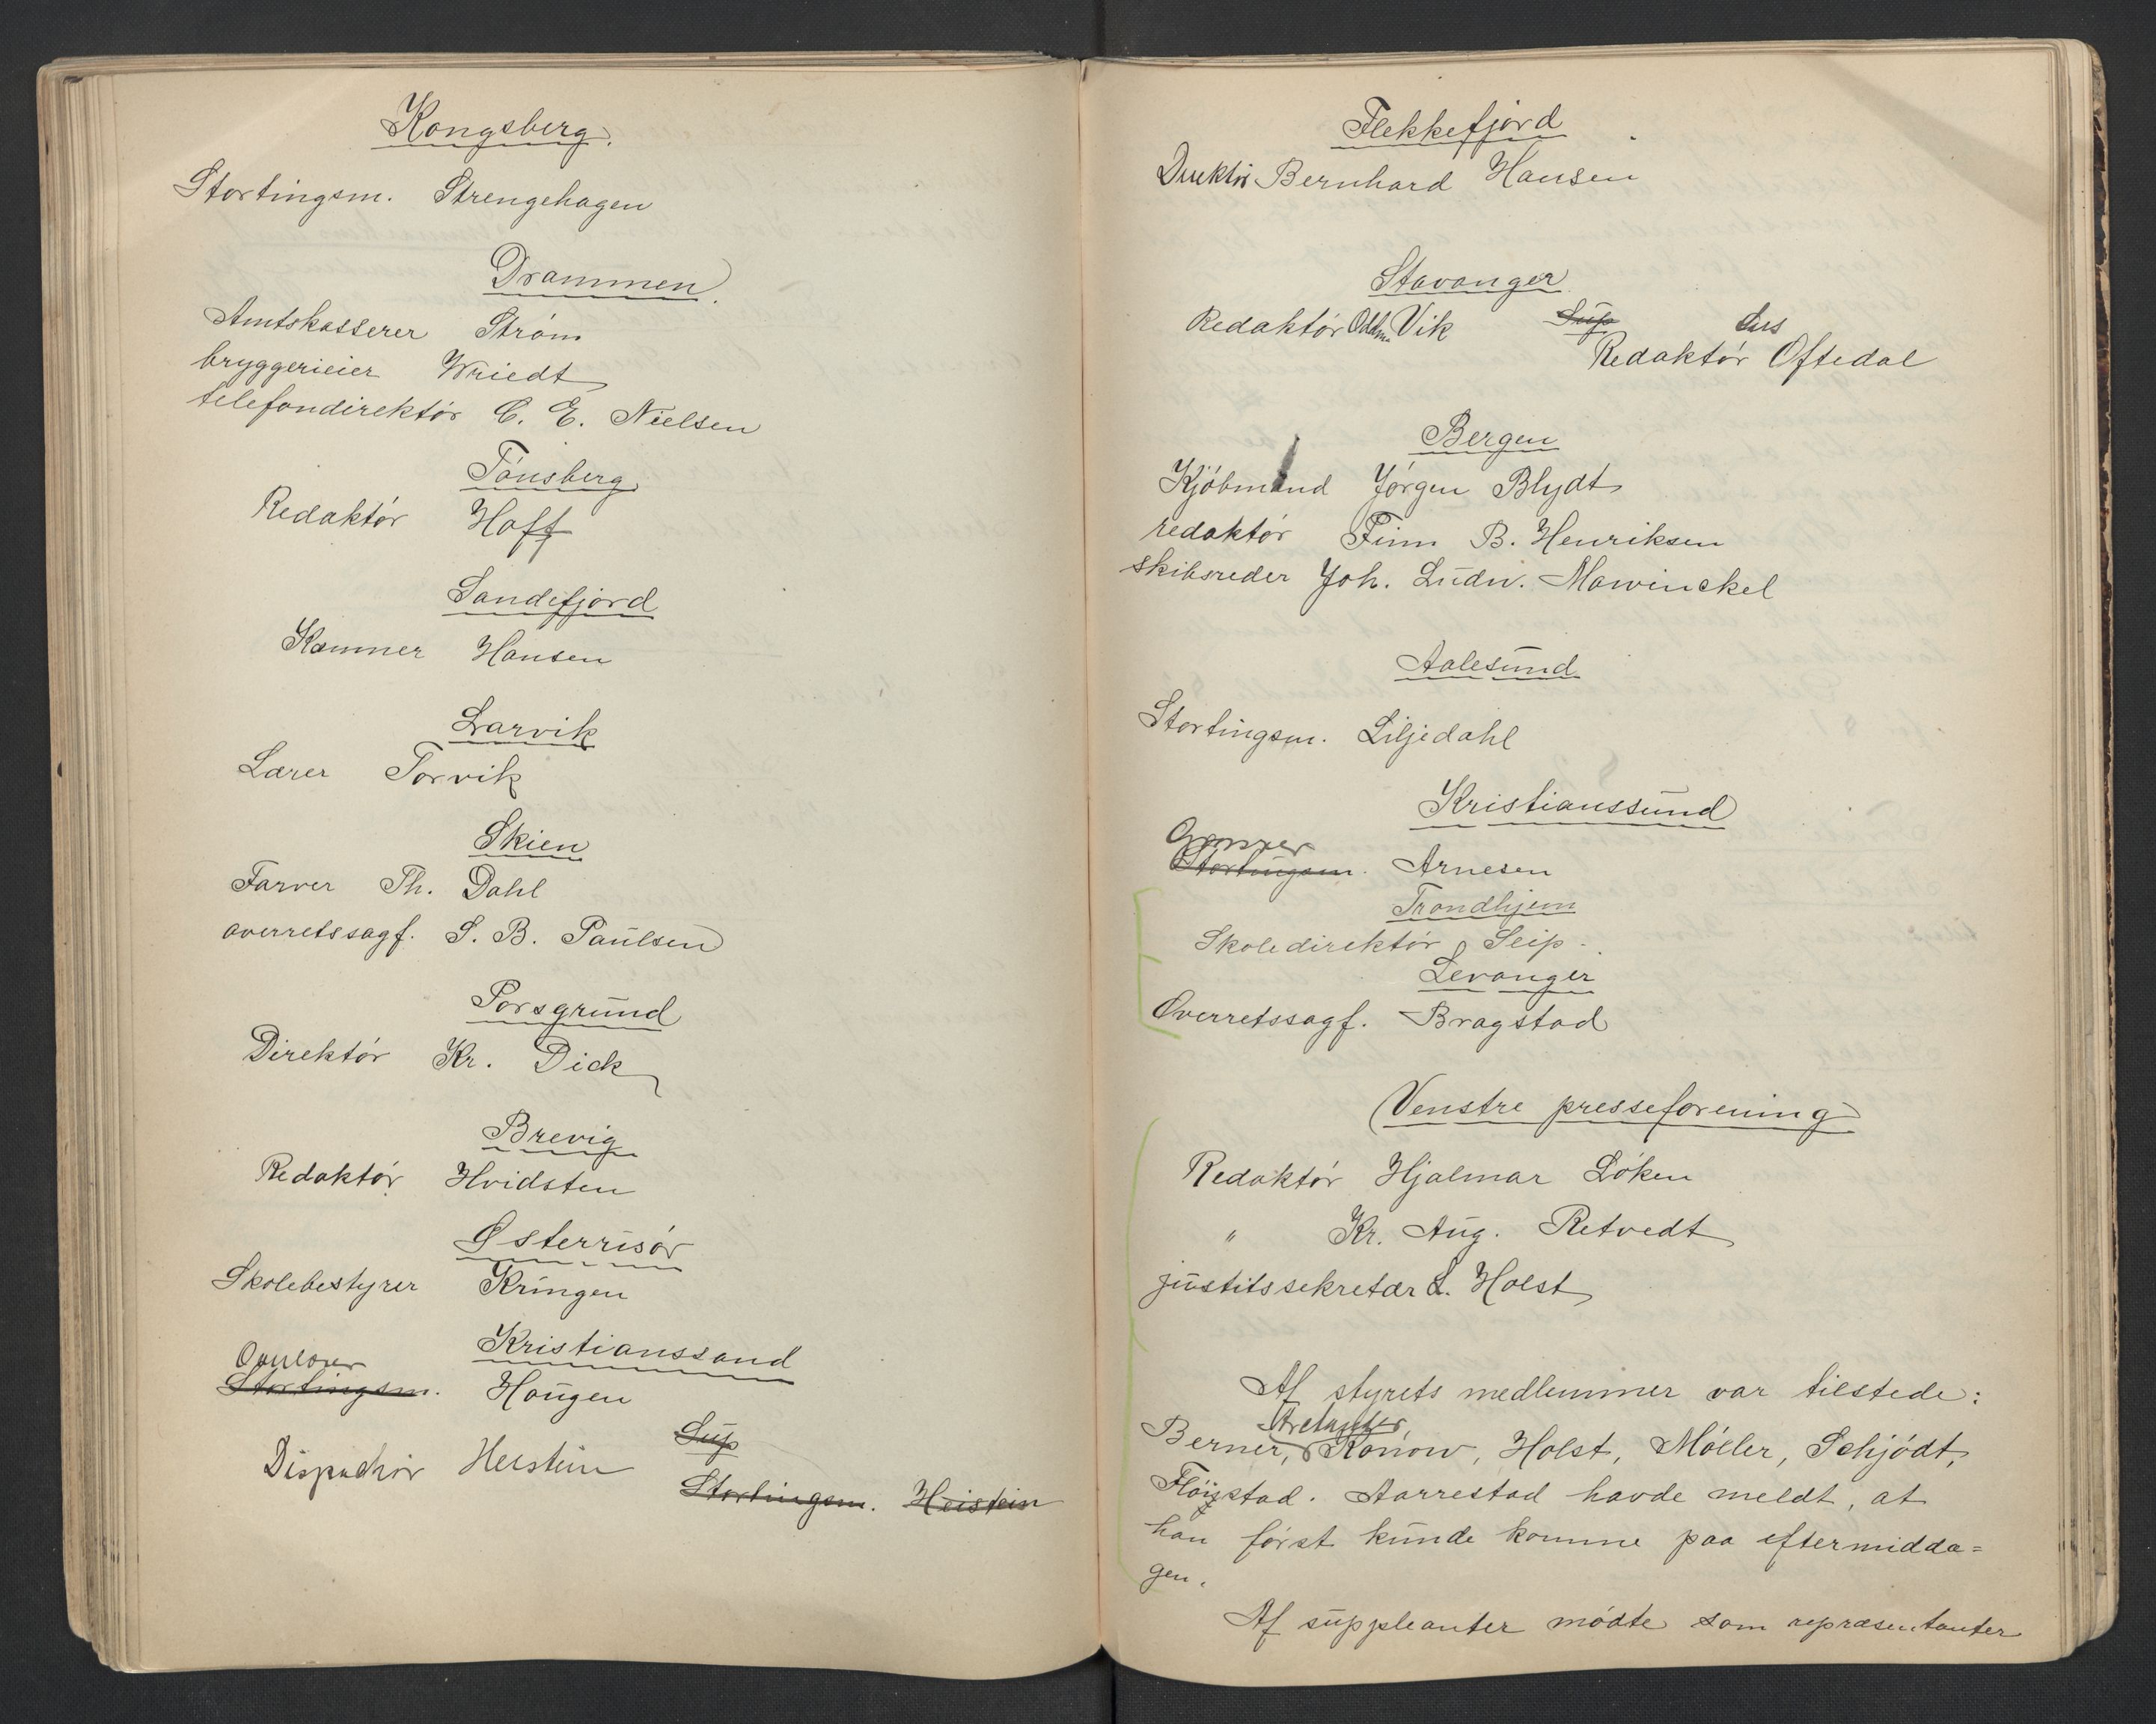 Kongsberg.
Stortingsm. Strengehagen
Drammen.
Amtskasserer Strøm
bryggerieier Wriedt
telefondirektør C. E. Nielsen
Tønsberg
Redaktør Hoff
Sandefjord
Kæmner Hansen
Larvik
Lærer Torvik
Skien
Farver Th. Dahl
overretssagf. S. B. Paulsen
Porsgrund
Direktør Kr. Dick
Brevig
Redaktør Hvidsten
Østerrisør
Skolebestyrer Kringen
Kristianssand
Stortingsm. Haugen
Sup
Dispachør Heistein
Stortingsm. Heistein
Flekkefjord
Direktør Bernhard Hansen
Stavanger
Redaktør Oddm. Vik Sup
Redaktør Oftedal
Bergen
Kjøbmand Jørgen Blydt
redaktør Finn B. Henriksen
skibsreder Joh. Ludw. Mowinckel
Aalesund
Stortingsm. Liljedahl
Kristianssund
Grosserer
Stortingsm. Arnesen
Trondhjem
Skoledirektør Seip.
Levanger
Overretssagf. Bragstad
Venstre presseforening
Redaktør Hjalmar Løken
" Kr. Aug. Retvedt
justitssekretær L. Holst
Af styrets medlemmer var tilstede:
Arctander,
Berner, Konow, Holst, Møller, Schjødt,
Fløistad. Aarrestad havde meldt, at
han først kunde komme paa eftermidda=
gen.
Af suppleanter mødte som repræsentanter